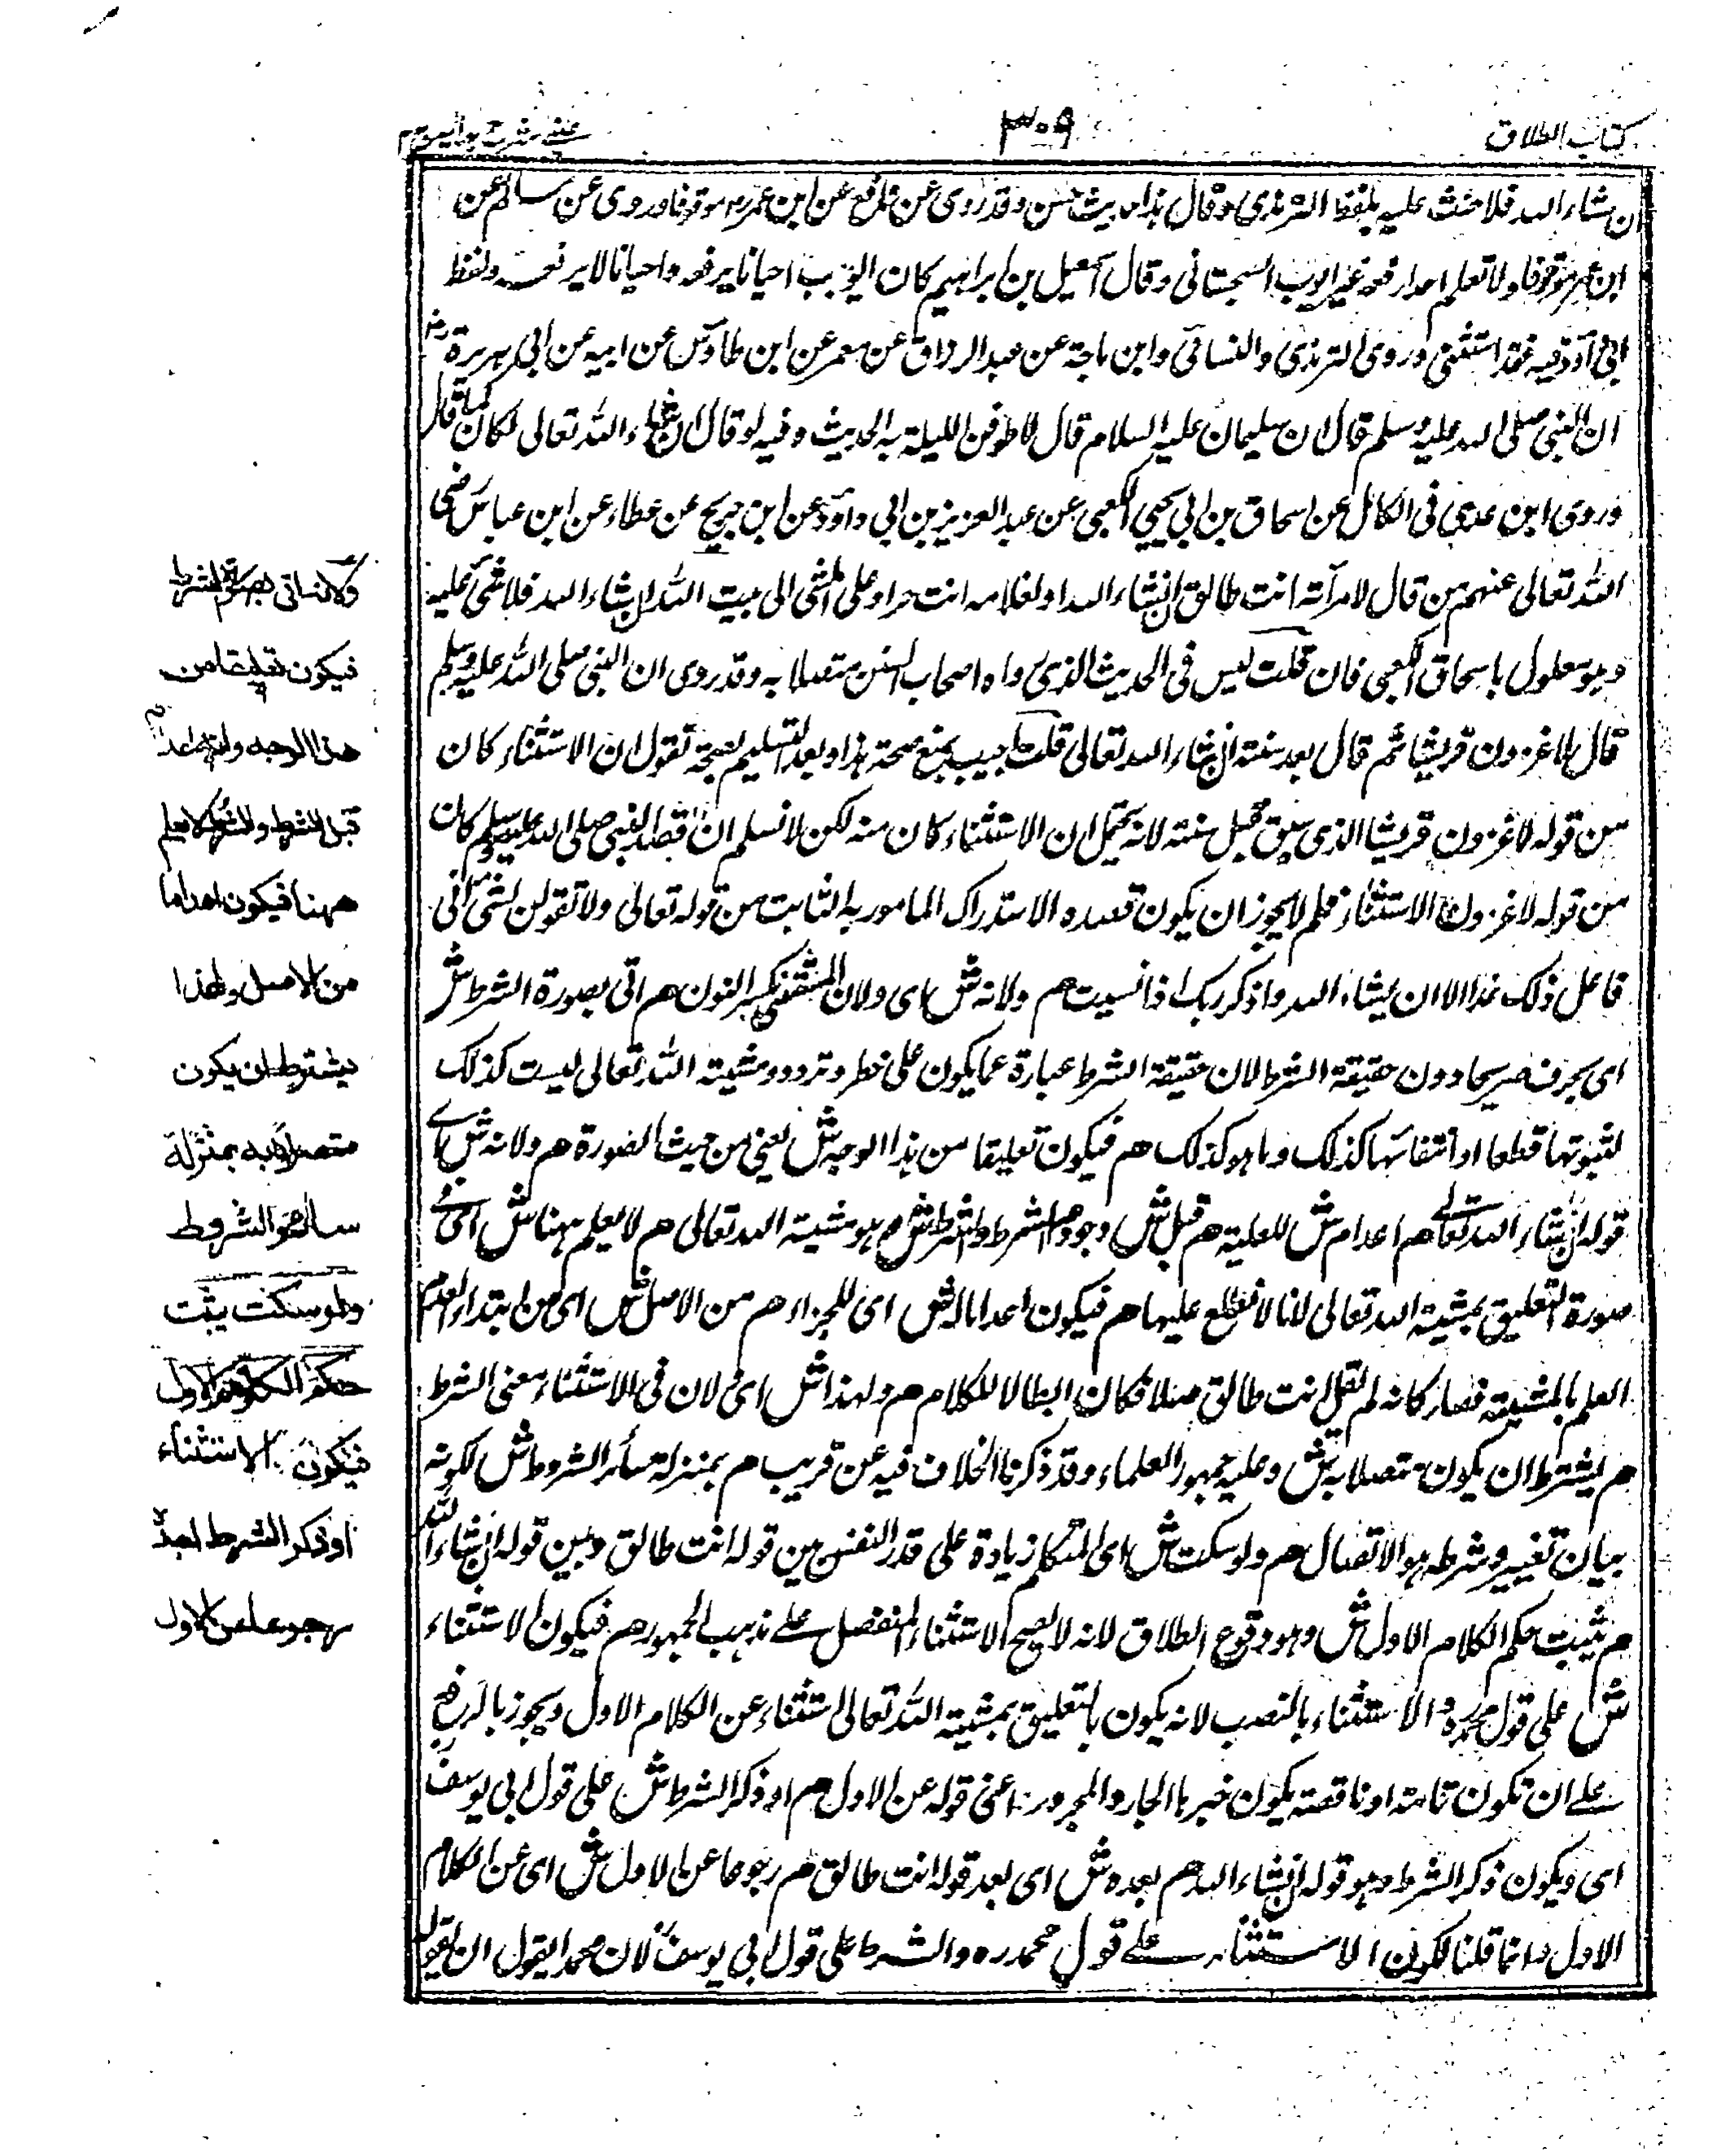 كتاب الطلاق
٣٠٩
ان شاء الله فلا حنث عليه بلفظ الترمذي وقال هذا حديث حسن وقد روى عن نافع عن ابن عمر رم موقوفا وروى عن سالم عن
ابن عمر موقوفا ولا تعلم احدا رفعه غير ايوب السجستانى وقال اسمعيل بن ابراهيم كان ايوب احيانا يرفعه واحيانا لا يرفعه ولفظ
ابى داؤد فيه فقد استثنى وروى الترمذي والنسائى وابن ماجة عن عبد الرزاق عن معمر عن ابن طاؤس عن ابيه عن ابى هريرة رض
ان النبى صلى الله عليه وسلم قال ان سليمان عليه السلام قال لاطوفن الليلة به الحديث وفيه لو قال ان شاء الله تعالى لكان كما قال
وروى ابن عدى فى الكامل عن اسحاق بن ابى يحيى الكعبى عن عبد العزيز بن ابى داؤد عن ابن جريج عن عطاء عن ابن عباس رضى
الله تعالى عنهم من قال لامرأته انت طالق ان شاء الله او لغلامه انت حر او على المشى الى بيت الله ان شاء الله فلا شئ عليه
وهو معلول باسحاق الكعبى فان قلت ليس فى الحديث الذى رواه اصحاب السنن متصلا به وقد روى ان النبى صلى الله عليه وسلم
قال لاغزون قريشا ثم قال بعد سنة ان شاء الله تعالى قلت اجيب بمنع صحة هذا وبعد التسليم لصحته نقول ان الاستثناء كان
من قوله لاغزون قريشا الذى سبق قبل سنة لانه يحتمل ان الاستثناء كان منه لكن لا نسلم ان قصد النبى صلى الله عليه وسلم كان
من قوله لاغزون الاستثناء فلم لا يجوز ان يكون قصده الاستدراك المامور به الثابت من قوله تعالى ولا تقولن لشئ انى
فاعل ذلك غدا الا ان يشاء الله واذكر ربك اذا نسيت هم ولانه ش اى ولان المستثنى بكسر النون هم اتى بصورة الشرط ش
اى بحرف صريحا دون حقيقة الشرط لان حقيقة الشرط عبارة عما يكون على خطر وتردد ومشية الله تعالى ليست كذلك
لثبوتها قطعا او انتفائها كذلك وما هو كذلك هم فيكون تعليقا من هذا الوجه ش يعنى من حيث الصورة هم ولانه ش اى
قوله ان شاء الله تعالى هم اعدام ش للعلية هم قبل ش وجود هم الشرط والشرط ش م هو مشية الله تعالى هم لا يعلم ههنا ش اى فى
صورة التعليق بمشية الله تعالى لانا لا نطلع عليها هم فيكون اعداما له ش اى للجزاء هم من الاصل ش اى من ابتداء لعدم
العلم بالمشية فصار كانه لم يقل انت طالق اصلا فكان ابطالا للكلام هم ولهذا ش اى لان فى الاستثناء معنى الشرط
هم يشترط ان يكون متصلا به ش وعليه جمهور العلماء وقد ذكرنا الخلاف فيه عن قريب هم بمنزلة سائر الشروط ش لكونه
بيان تغيير وشرطه هو الاتصال هم ولو سكت ش اى المتكلم زيادة على قدر النفس بين قوله انت طالق وبين قوله ان شاء الله
هم يثبت حكم الكلام الاول ش وهو وقوع الطلاق لانه لا يصح الاستثناء المنفصل على مذهب الجمهور هم فيكون الاستثناء
ش على قول محمد ره والاستثناء بالنصب لانه يكون بالتعليق بمشية الله تعالى استثناء عن الكلام الاول ويجوز بالرفع
على ان تكون تامة او ناقصة يكون خبرها الجار والمجرور اعنى قوله عن الاول هم او ذكر الشرط ش على قول ابى يوسف
اى ويكون ذكر الشرط وهو قوله ان شاء الله هم بعده ش اى بعد قوله انت طالق هم رجوعا عن الاول ش اى عن الكلام
الاول وانما قلنا لكون الاستثناء على قول محمد ره والشرط على قول ابى يوسف لان محمدا يقول ان قوله
ولانه اتى بصورة الشرط
فيكون تعليقا من
هذا الوجه وانه اعدام
قبل الشرط والشرط لا يعلم
ههنا فيكون اعداما
من الاصل ولهذا
يشترط ان يكون
متصلا به بمنزلة
سائر الشروط
ولو سكت يثبت
حكم الكلام الاول
فيكون الاستثناء
او ذكر الشرط بعده
رجوعا عن الاول